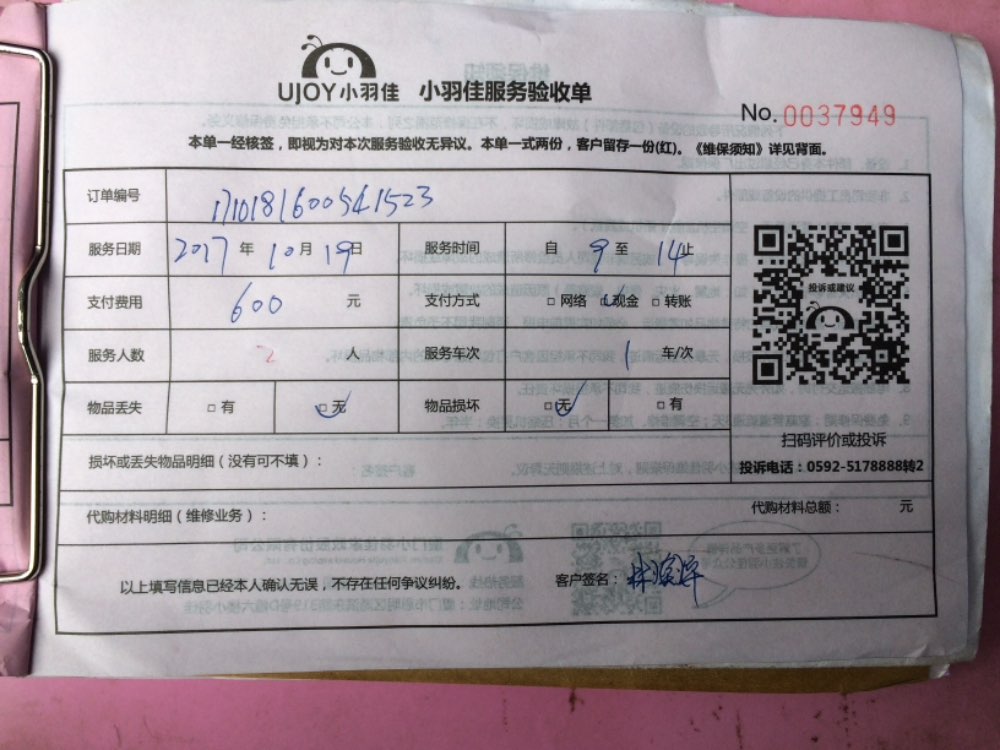 UJOY小羽佳 小羽佳服务验收单
No. 0037949
本单一经核签，即视为对本次服务验收无异议。本单一式两份，客户留存一份(红)。《维保须知》详见背面。
订单编号 1710181600541523
服务日期 2017 年 10 月 19 日 服务时间 自 9 至 14 止
支付费用 600 元 支付方式 □ 网络 □ 现金 □ 转账
服务人数 2 人 服务车次 1 车/次
物品丢失 □ 有 □ 无 物品损坏 □ 无 □ 有
投诉或建议
扫码评价或投诉
投诉电话：0592-5178888转2
损坏或丢失物品明细（没有可不填）：
代购材料明细（维修业务）： 代购材料总额： 元
以上填写信息已经本人确认无误，不存在任何争议纠纷。 客户签名：